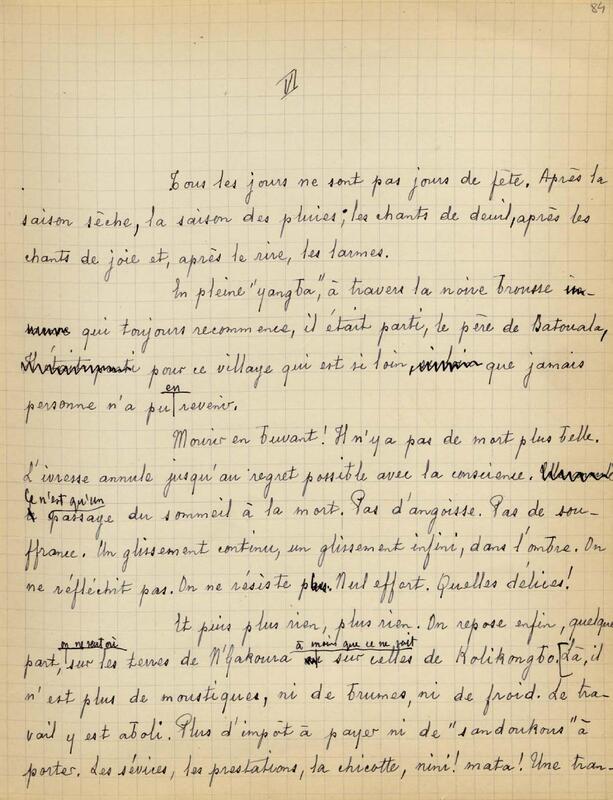 84
VI
Tous les jours ne sont pas jours de fête. Après la
saison sèche, la saison des pluies; les chants de deuil, après les
chants de joie et, après le rire, les larmes.
En pleine "yangba", à travers la noire brousse
qui toujours recommence, il était parti, le père de Batouala,
pour ce village qui est si loin, que jamais
en
personne n'a pu revenir.
Mourir en buvant! Il n'y a pas de mort plus belle.
L'ivresse annule jusqu'au regret possible avec la conscience.
Ce n'est qu'un
passage du sommeil à la mort. Pas d'angoisse. Pas de sou-
ffrance. Un glissement continu, un glissement infini, dans l'ombre. On
ne réfléchit pas. On ne résiste plus. Nul effort. Quelles délices!
Et puis plus rien, plus rien. On repose enfin, quelque
on ne sait où à moins que ce ne soit
part, sur les terres de N'Gakoura sur celles de Kolikongbo. [Là, il
n'est plus de moustiques, ni de brumes, ni de froid. Le tra-
vail y est aboli. Plus d'impôt à payer ni de "sandoukous" à
porter. Les sévices, les prestations, la chicotte, nini! mata! Une tran-